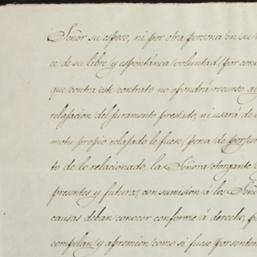 Señor su esposo, ni por otra persona en su
ce de su libre y espontanea voluntad, por con
que contra este contrato no opondrá recurso
relajacion del juramento prestado, ni usará de
motu propio relajado le fuere, pena de perjur
to de lo relacionado, la Señora otorgante
presentes y futuros, con sumision á los Señ
causas deban conocer conforme á derecho, p
compelan y apremien como si fuese por senten